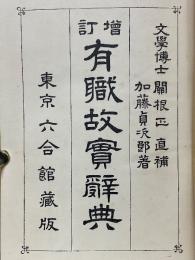 文學博士 關根正直補
加藤貞次郎著
增訂
有職故實辭典
東京 六合館藏版